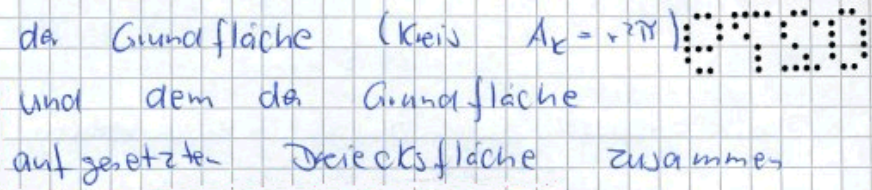 der Grundfläche (Kreis A_K = r²π)
und dem der Grundfläche
aufgesetzten Dreiecksfläche zusammen